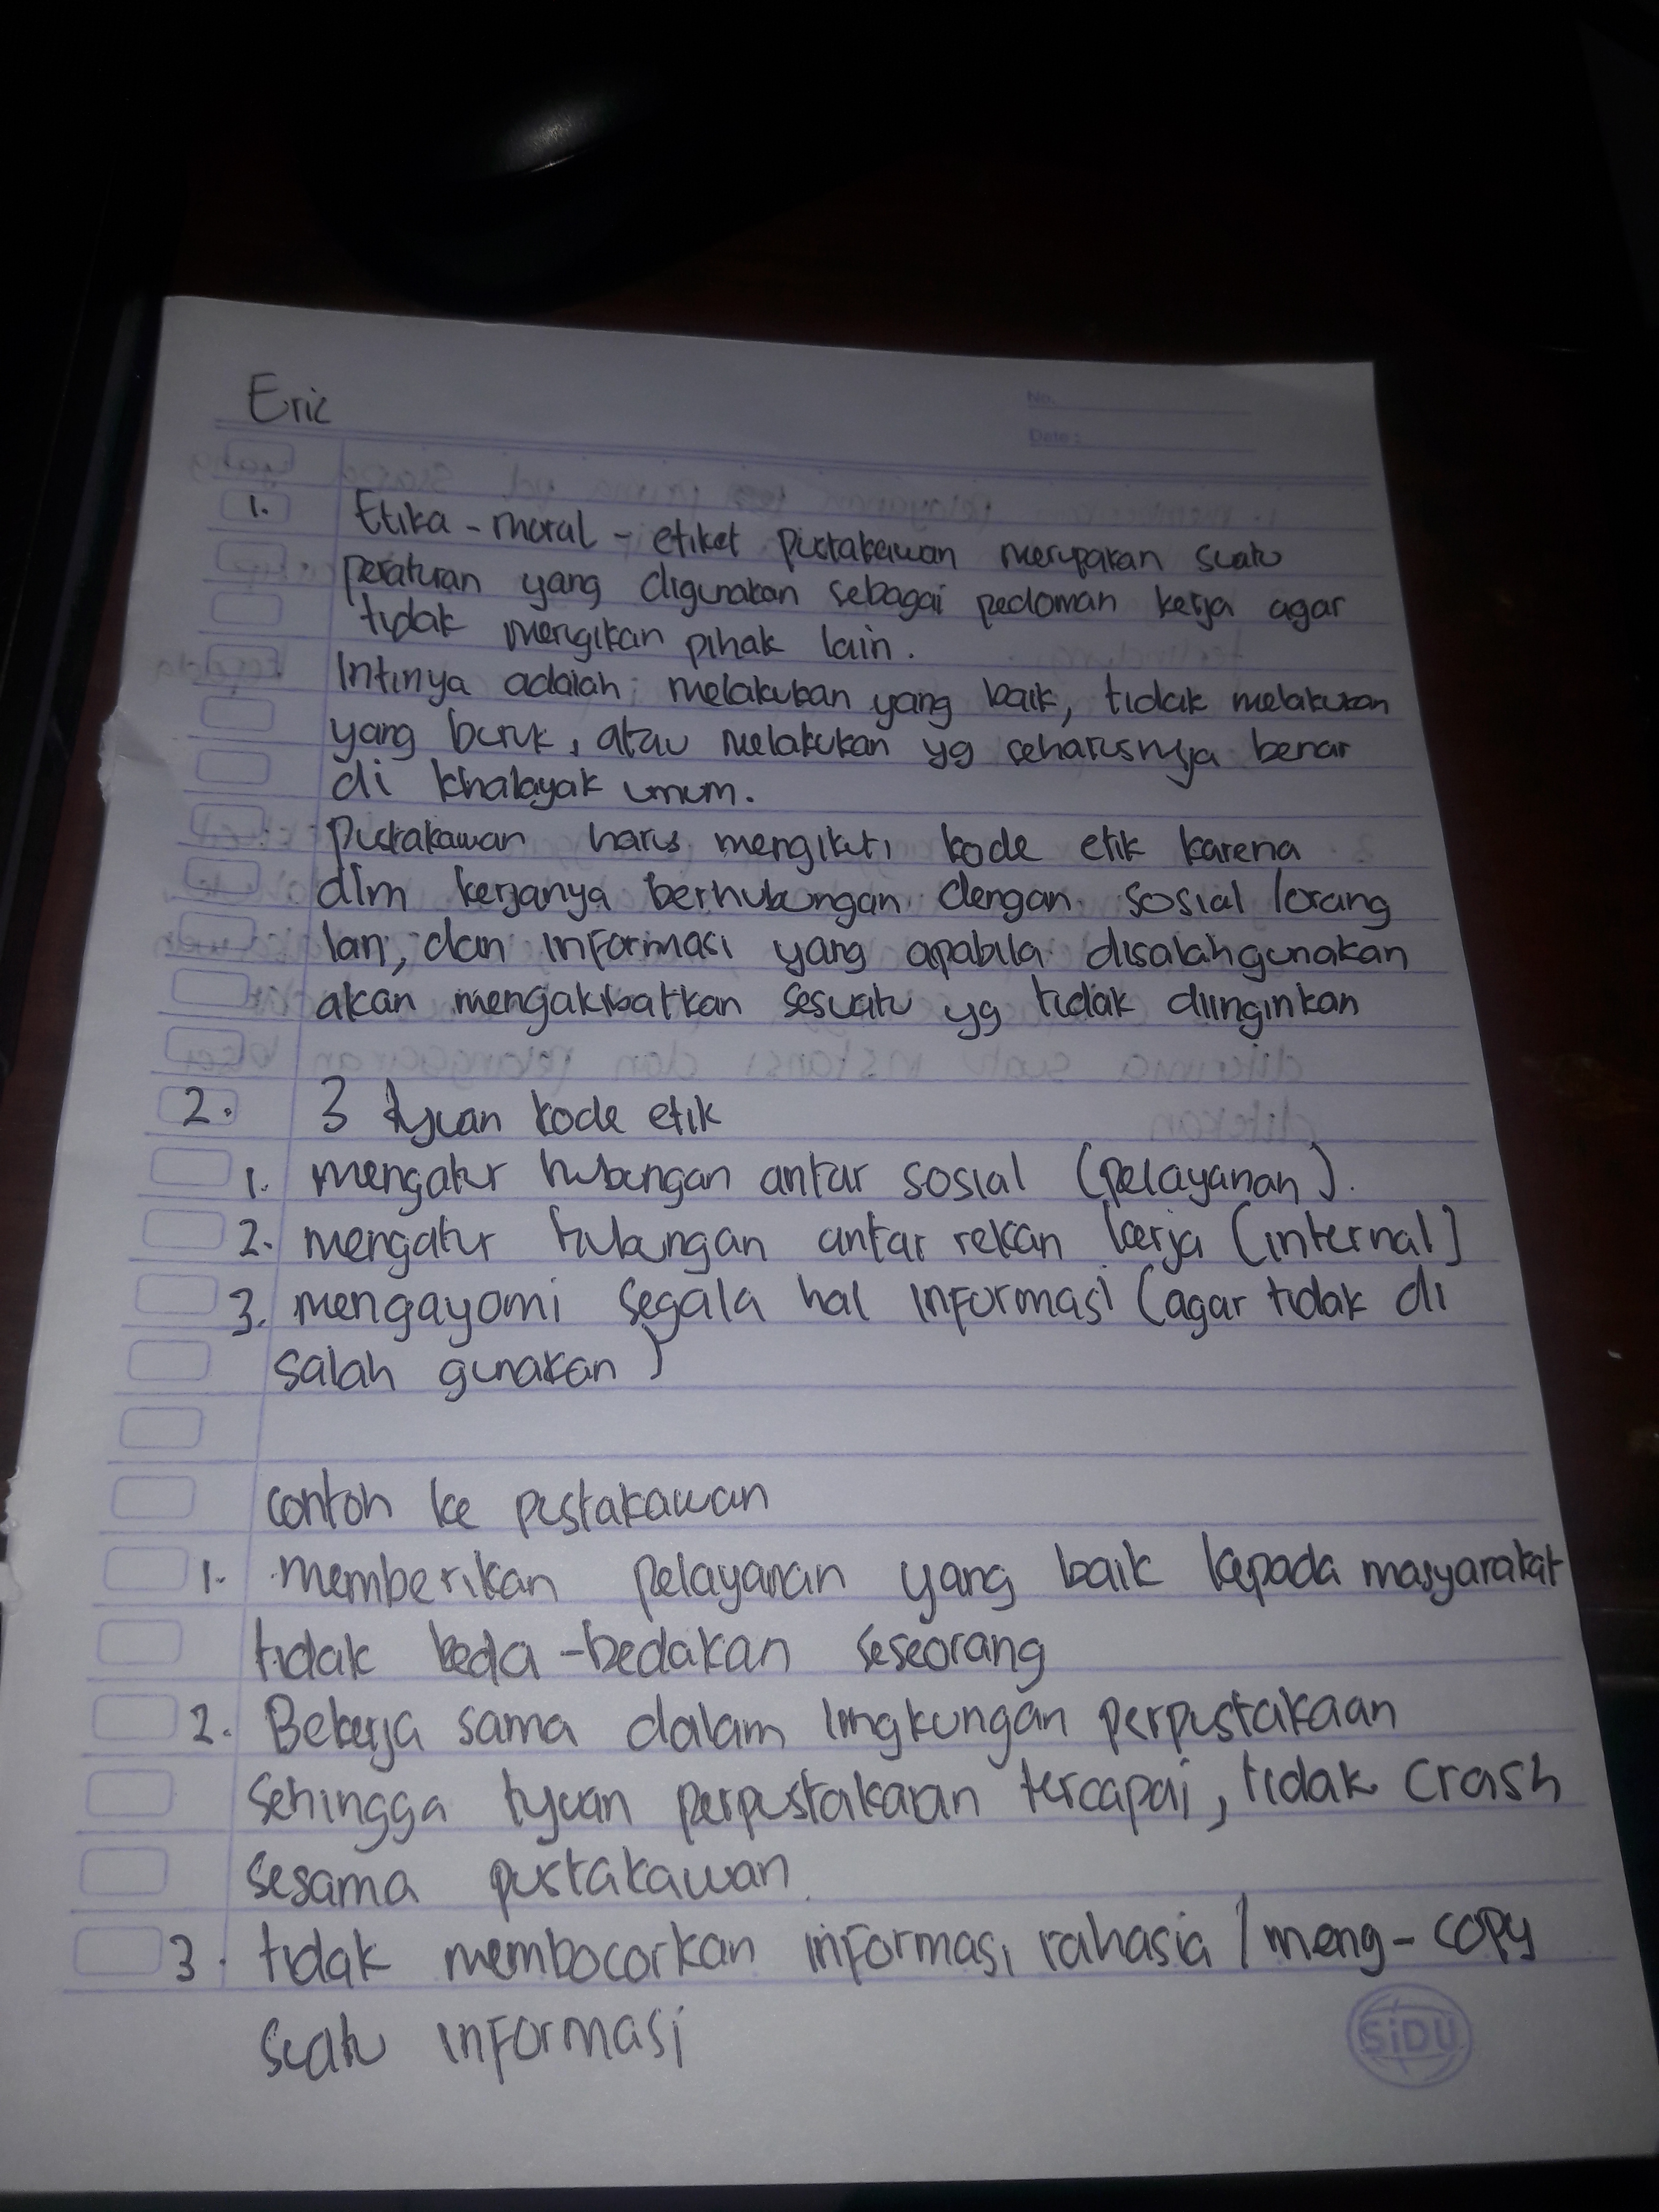 Eric
No.
Date :
1. Etika - moral - etiket pustakawan merupakan suatu
peraturan yang digunakan sebagai pedoman kerja agar
tidak merugikan pihak lain.
Intinya adalah : melakukan yang baik, tidak melakukan
yang buruk, atau melakukan yg seharusnya benar
di khalayak umum.
Pustakawan harus mengikuti kode etik karena
dlm kerjanya berhubungan dengan sosial / orang
lain, dan informasi yang apabila disalahgunakan
akan mengakibatkan sesuatu yg tidak diinginkan
2. 3 tujuan kode etik
1. mengatur hubungan antar sosial (pelayanan).
2. mengatur hubungan antar rekan kerja (internal)
3. mengayomi segala hal informasi (agar tidak di
salah gunakan)
contoh ke pustakawan
1. memberikan pelayanan yang baik kepada masyarakat
tidak beda-bedakan seseorang
2. Bekerja sama dalam lingkungan perpustakaan
sehingga tujuan perpustakaan tercapai, tidak crash
sesama pustakawan.
3. tidak membocorkan informasi rahasia / meng-copy
suatu informasi
SiDU